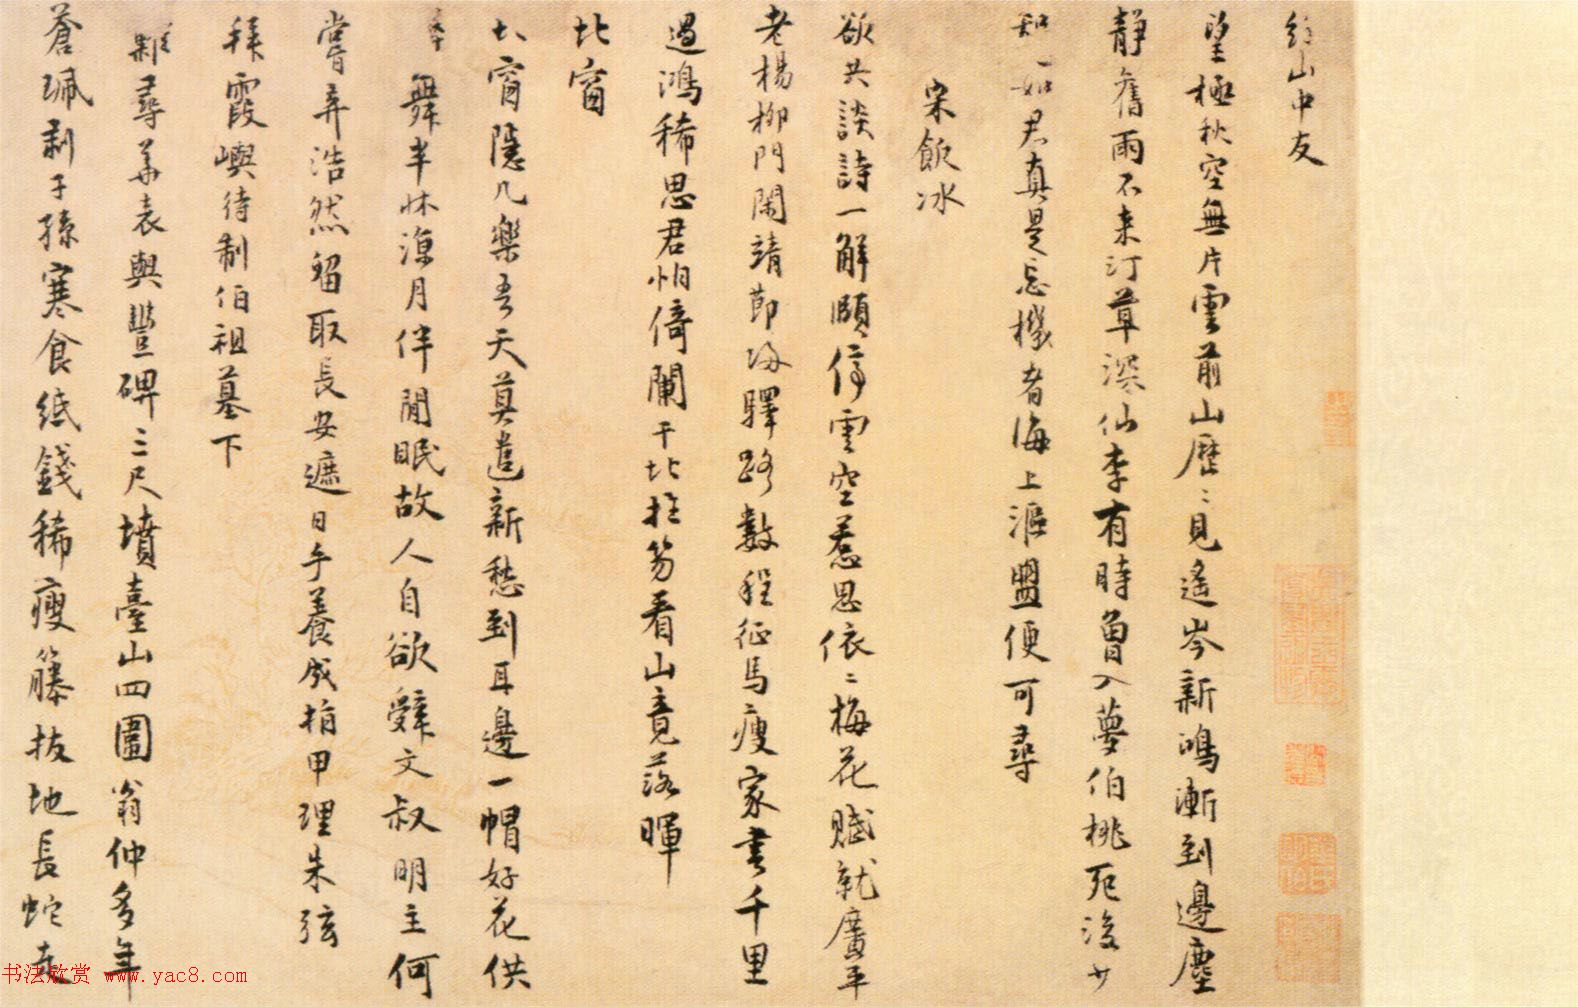 約山中友
望極秋空無片雲前山歷〻見遙岑新鴻漸到邊塵
靜舊雨不来汀草深仙李有時曽入夢伯桃死後少
知如君真是忘機者海上漚盟便可尋
宋飲冰
欲共談詩一解頤停雲空惹思依〻梅花賦就廣平
老楊柳門閑靖節歸驛路數程征馬瘦家書千里
過鴻稀思君怕倚闌干北拄笏看山竟落暉
北窗
北窗隱几樂吾天莫遣新愁到耳邊一帽好花供
舞半牀涼月伴閒眠故人自欲辤文叔明主何
嘗弃浩然留取長安遮日手養成指甲理朱弦
拜霞嶼待制伯祖墓下
難尋華表與豐碑三尺墳臺山四圍翁仲多年
蒼珮剥子孫寒食紙錢稀瘦藤拔地長蛇走
书法欣赏 www.yac8.com